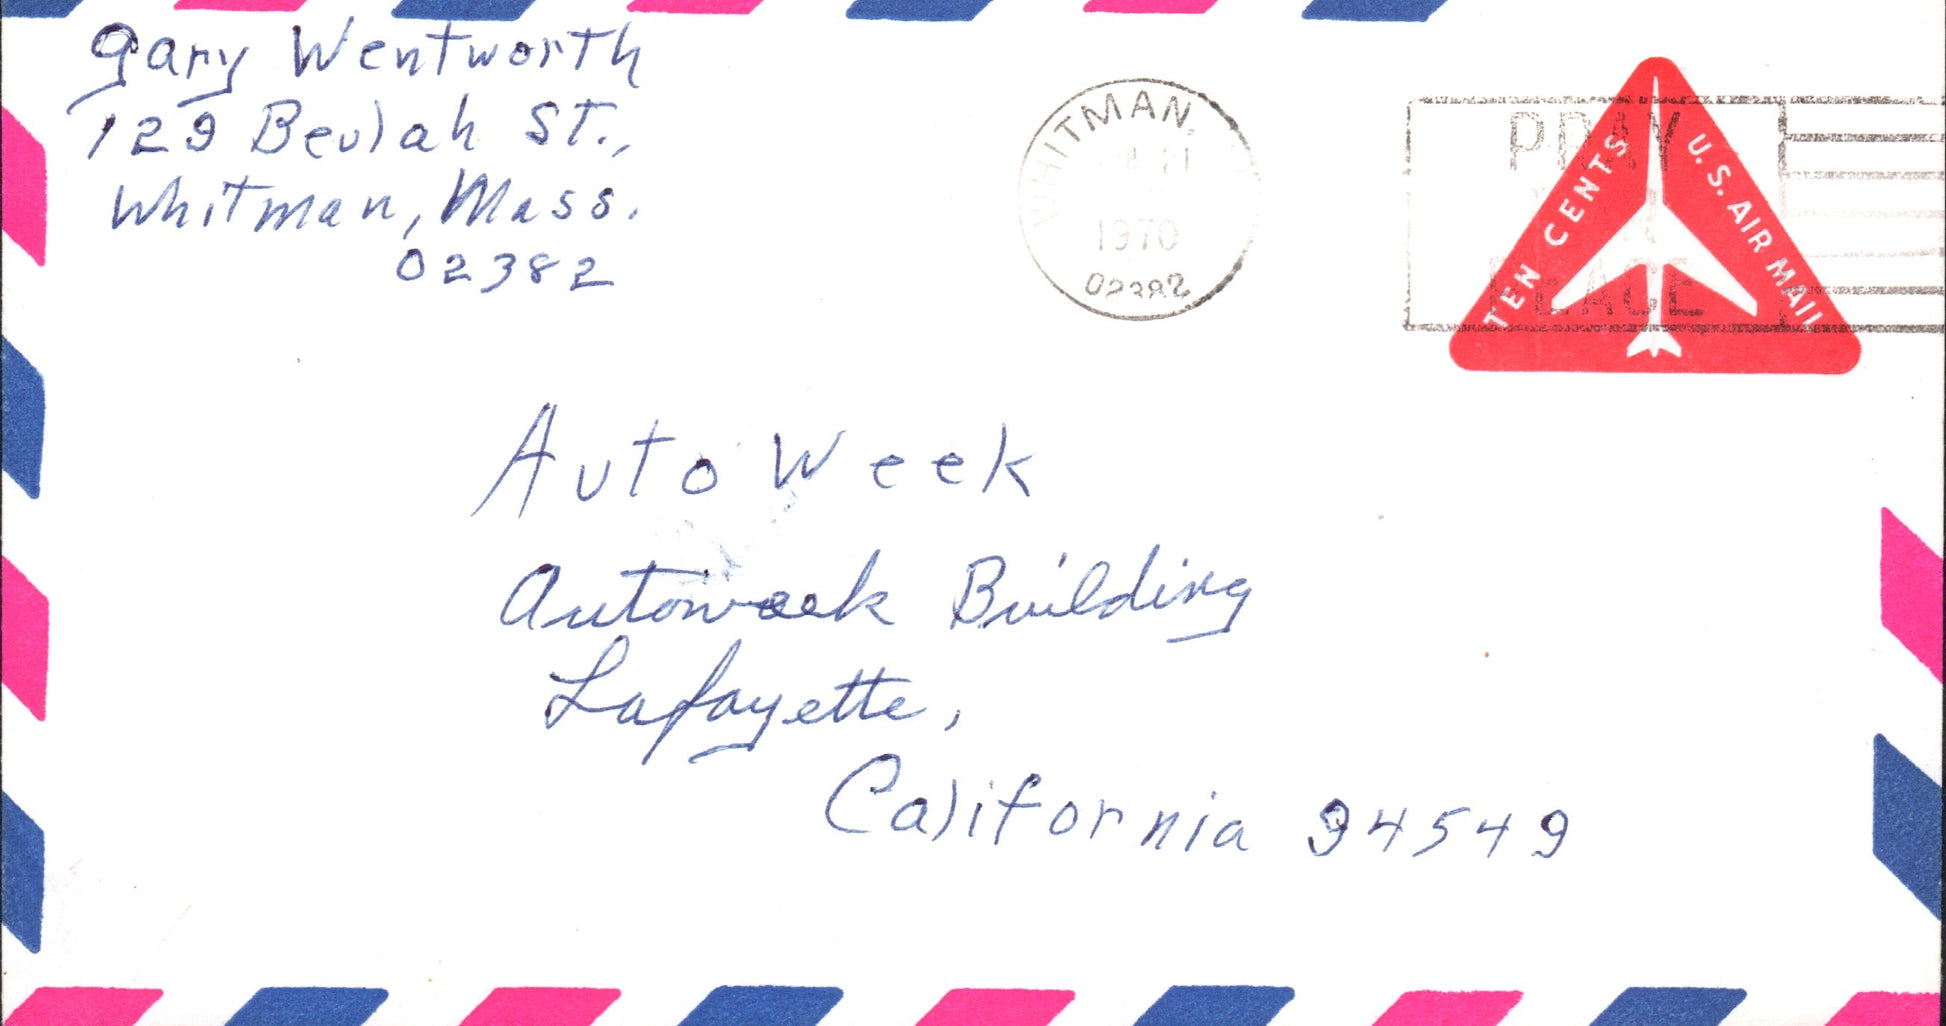 Gary Wentworth
129 Beulah St.,
Whitman, Mass.
02382
WHITMAN,
21
1970
02382
PRAY
PEACE
TEN CENTS
U.S. AIR MAIL
Auto Week
Autoweek Building
Lafayette,
California 94549